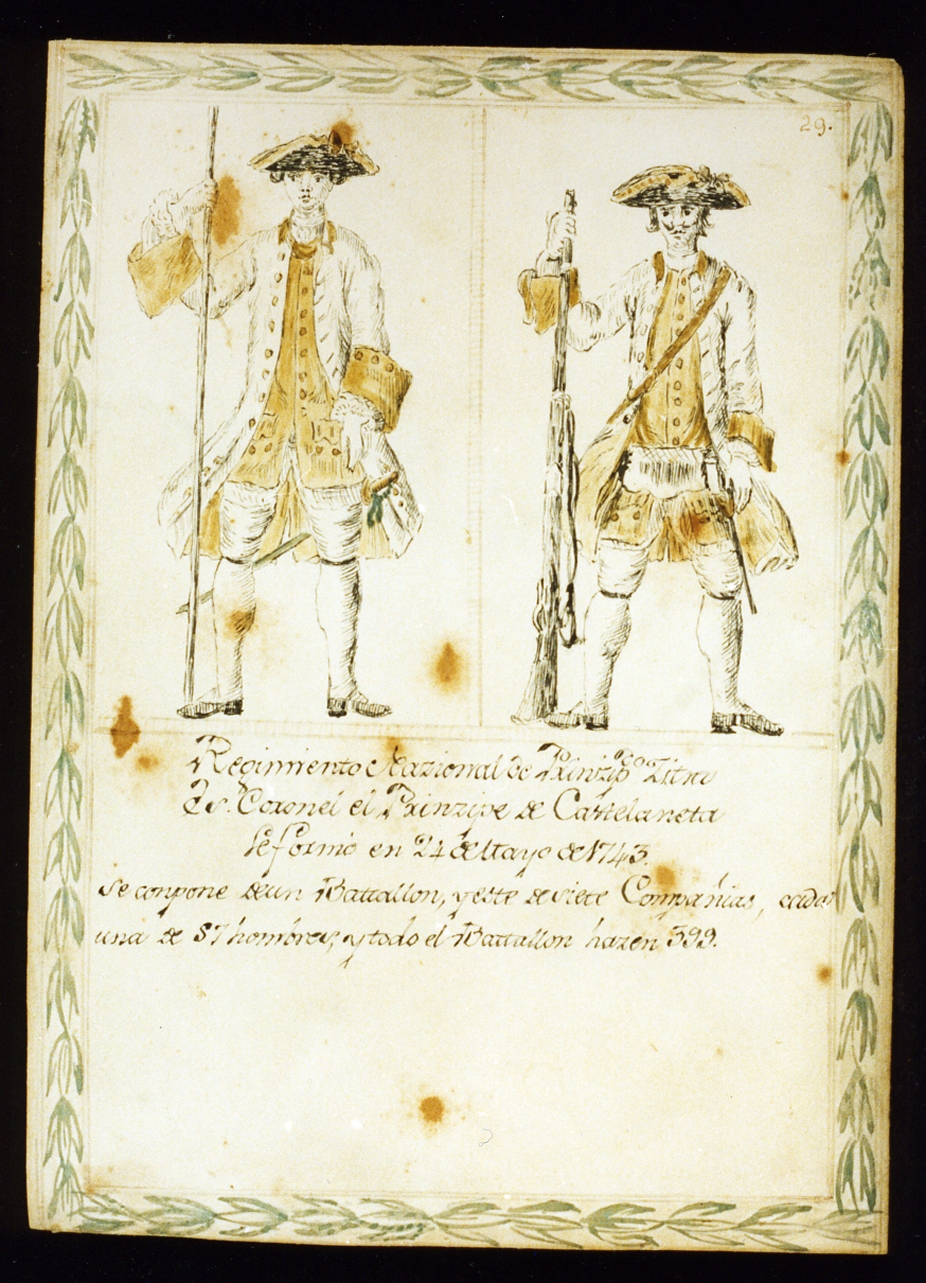 29.
Regimiento Nazional de Prinzip.do Zitra
Es Coronel el Prinzipe de Castelaneta
se formó en 24 de Mayo de 1743.
Se conpone de un Battallon, y este de siete Compañias, cada
una de 57 hombres, y todo el Battallon hazen 399.